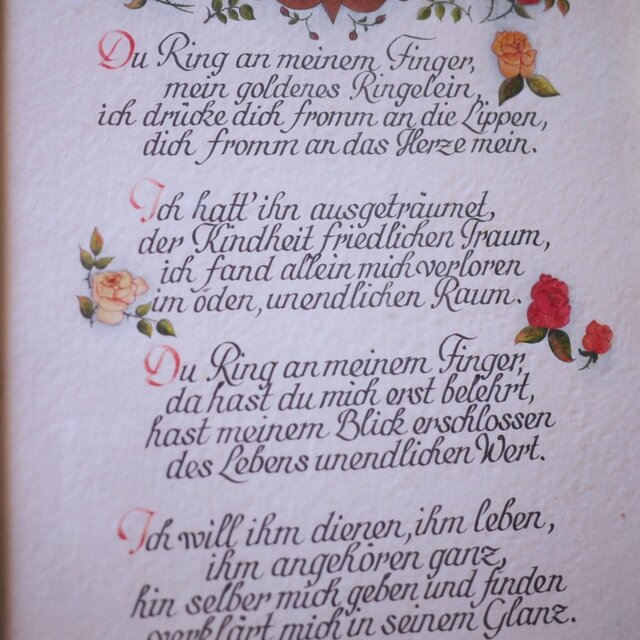 Du Ring an meinem Finger,
mein goldenes Ringelein,
ich drücke dich fromm an die Lippen,
dich fromm an das Herze mein.
Ich hatt' ihn ausgeträumet,
der Kindheit friedlichen Traum,
ich fand allein mich verloren
im öden, unendlichen Raum.
Du Ring an meinem Finger,
da hast du mich erst belehrt,
hast meinem Blick erschlossen
des Lebens unendlichen Wert.
Ich will ihm dienen, ihm leben,
ihm angehören ganz,
hin selber mich geben und finden
verklärt mich in seinem Glanz.